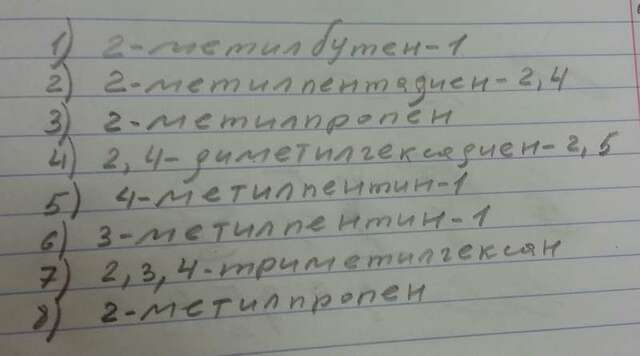 1) 2-метилбутен-1
2) 2-метилпентадиен-2,4
3) 2-метилпропен
4) 2,4-диметилгексадиен-2,5
5) 4-метилпентин-1
6) 3-метилпентин-1
7) 2,3,4-триметилгексан
8) 2-метилпропен